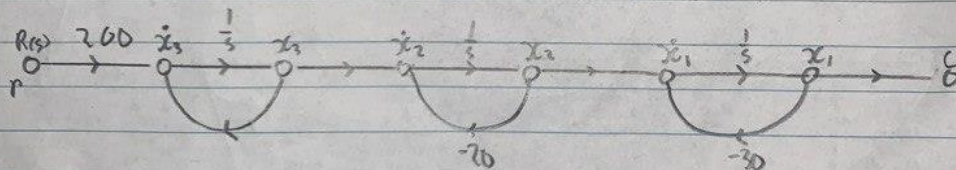 R(s) 200 ẋ₃ 1/s x₃ ẋ₂ 1/s x₂ ẋ₁ 1/s x₁ C
r
-20 -30